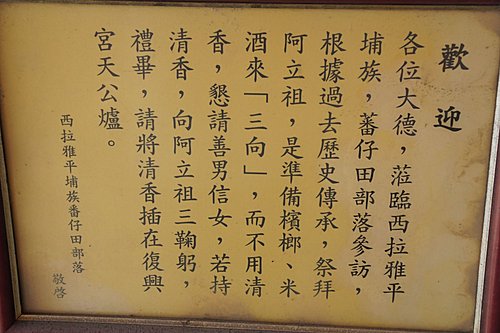 歡迎
各位大德，蒞臨西拉雅平
埔族，蕃仔田部落參訪，
根據過去歷史傳承，祭拜
阿立祖，是準備檳榔、米
酒來「三向」，而不用清
香，懇請善男信女，若持
清香，向阿立祖三鞠躬，
禮畢，請將清香插在復興
宮天公爐。
西拉雅平埔族番仔田部落
敬啓